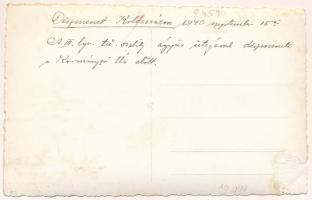 Díszmenet Kolozsváron 1940 szeptember 15-én
A III. hgy. tü. osztály ágyús ütegének díszmenete
a Kormányzó Úr előtt.
10.000